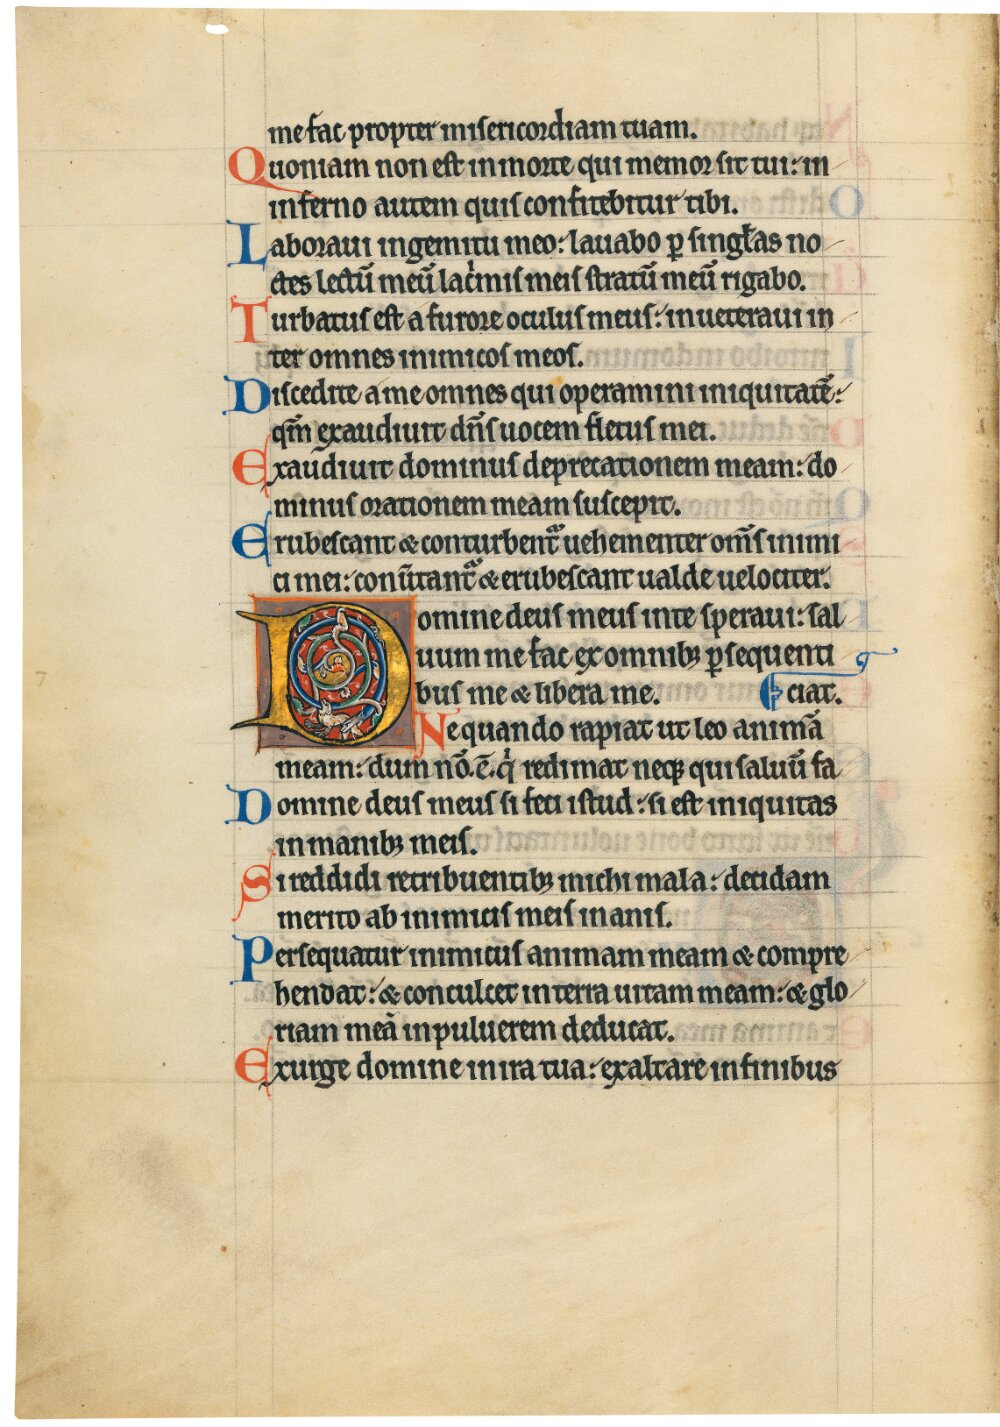 me fac propter misericordiam tuam.
Quoniam non est in morte qui memor sit tui: in
inferno autem quis confitebitur tibi.
Laboraui in gemitu meo: lauabo ꝑ singłas no
ctes lectū meū lac̍mis meis stratū meū rigabo.
Turbatus est a furore oculus meus: inueteraui in
ter omnes inimicos meos.
Discedite a me omnes qui operamini iniquitatē:
qm̄ exaudiuit dn̄s uocem fletus mei.
Exaudiuit dominus deprecationem meam: do
minus orationem meam suscepit.
Erubescant & conturbent᷑ uehementer om̄s inimi
ci mei: conūtant᷑ & erubescant ualde uelociter.
Domine deus meus in te speraui: sal
uum me fac ex omnibꝫ ꝑsequenti
bus me & libera me. ciat.
Ne quando rapiat ut leo animā
meam: dum nō .ē. q̍ redimat neqꝫ qui saluū fa
Domine deus meus si feci istud: si est iniquitas
in manibꝫ meis.
Si reddidi retribuentibꝫ michi mala: decidam
merito ab inimicis meis inanis.
Persequatur inimicus animam meam & compre
hendat: & conculcet in terra uitam meam: & glo
riam meā in puluerem deducat.
Exurge domine in ira tua: exaltare in finibus